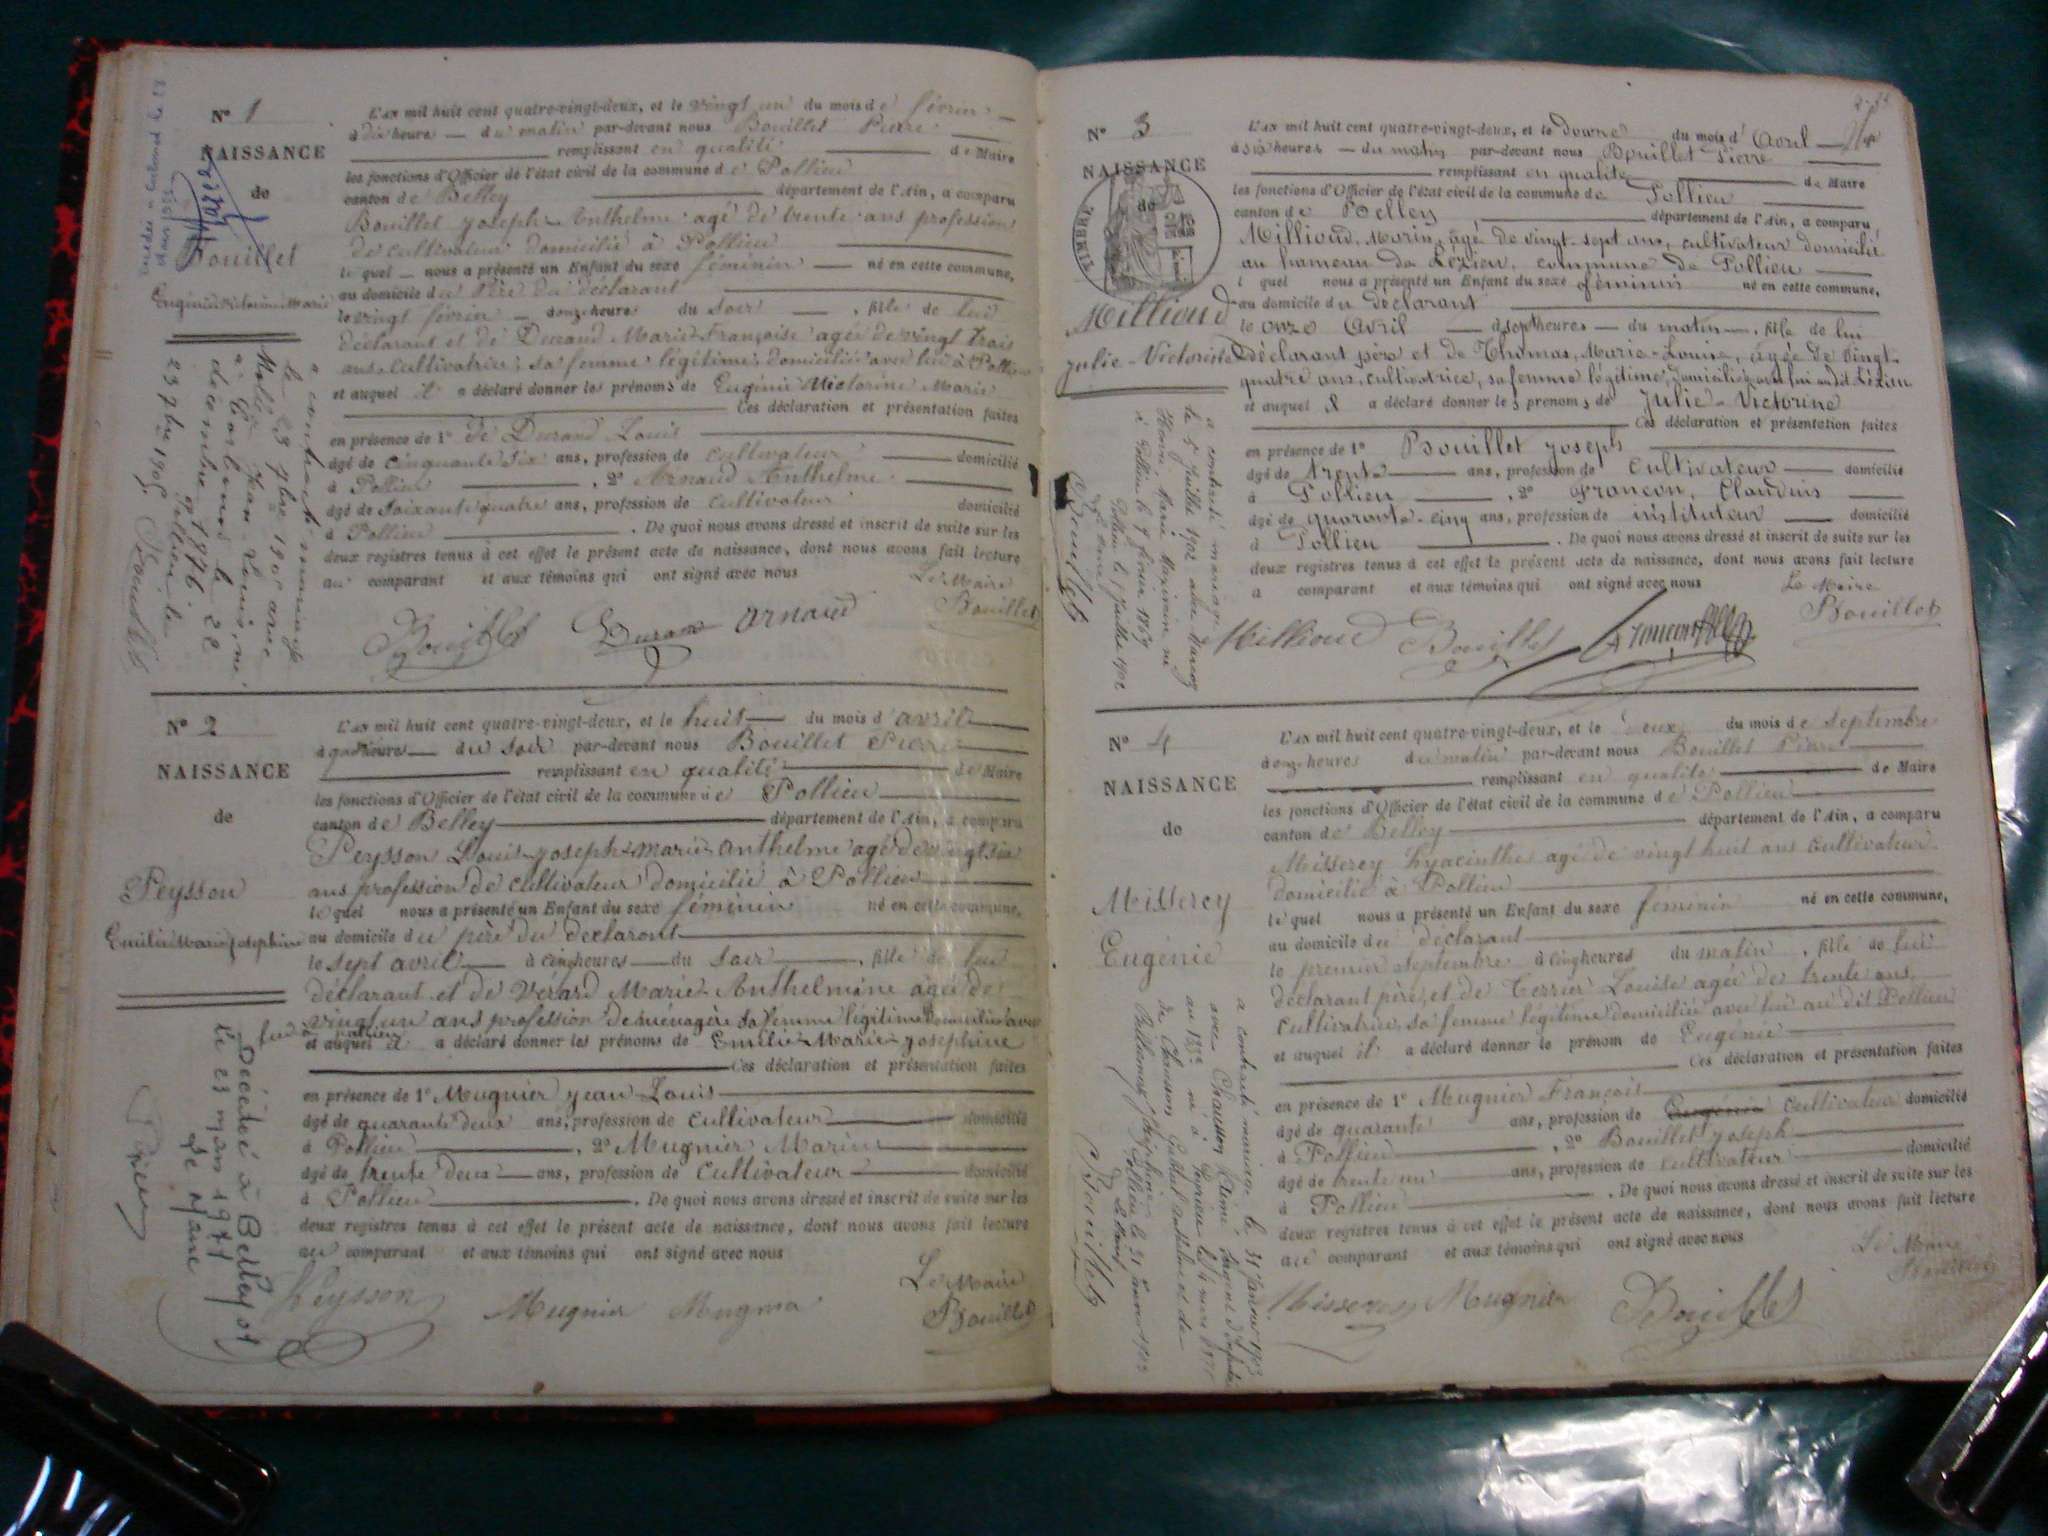 N° 1
NAISSANCE
de
Bouillet
Eugénie Victorine Marie
L'an mil huit cent quatre-vingt-deux, et le vingt un du mois de févrin
à dix heure du matin par-devant nous Bouillet Pierre
remplissant en qualité de Maire
les fonctions d'Officier de l'état civil de la commune de Pollieu
canton de Belley département de l'Ain, a comparu
Bouillet Joseph Anthelme agé de trente ans profession
de cultivateur domicilié à Pollieu
le quel nous a présenté un Enfant du sexe féminin né en cette commune,
au domicile du Père du déclarant
le vingt févrin onze heure du soir , fille de lui
déclarant et de Durand Marie Françoise agée de vingt trois
ans cultivatrice, sa femme légitime, domiciliée avec lui à Pollieu
et auquel il a déclaré donner les prénoms de Eugénie Victorine Marie
Ces déclaration et présentation faites
en présence de 1° de Durand Louis
âgé de cinquante six ans, profession de cultivateur domicilié
à Pollieu , 2° Arnaud Anthelme
âgé de soixante quatre ans, profession de cultivateur domicilié
à Pollieu . De quoi nous avons dressé et inscrit de suite sur les
deux registres tenus à cet effet le présent acte de naissance, dont nous avons fait lecture
au comparant et aux témoins qui ont signé avec nous
Le Maire
Bouillet
Bouillet Durand Arnaud
a contracté mariage
le 23 7bre 1905 avec
Jean Louis, né
à Corbonod le 22
décembre 1876
Pollieu le
23 7bre 1905
Bouillet
N° 2
NAISSANCE
de
Peysson
Emilie Marie Josephine
L'an mil huit cent quatre-vingt-deux, et le huit du mois d'avril
à heure du soir par-devant nous Bouillet Pierre
remplissant en qualité de Maire
les fonctions d'Officier de l'état civil de la commune de Pollieu
canton de Belley département de l'Ain, a comparu
Peysson Louis Joseph Marie Anthelme agé de vingt six
ans profession de cultivateur domicilié à Pollieu
le quel nous a présenté un Enfant du sexe féminin né en cette commune,
au domicile du père du déclarant
le sept avril à cinq heures du soir , fille de lui
déclarant et de Vérard Marie Anthelmine agée de
vingt un ans profession de ménagère sa femme légitime domiciliée avec
lui
et auquel il a déclaré donner les prénoms de Emilie Marie Josephine
Ces déclaration et présentation faites
en présence de 1° Mugnier Jean Louis
âgé de quarante deux ans, profession de cultivateur domicilié
à Pollieu , 2° Mugnier Marin
âgé de trente deux ans, profession de cultivateur domicilié
à Pollieu . De quoi nous avons dressé et inscrit de suite sur les
deux registres tenus à cet effet le présent acte de naissance, dont nous avons fait lecture
au comparant et aux témoins qui ont signé avec nous
Le Maire
Bouillet
Peysson Mugnier Mugnier
Décédée à Belley 01
le 23 mars 1971
Le Maire
N° 3
NAISSANCE
de
TIMBRE
Millioud
Julie-Victorine
L'an mil huit cent quatre-vingt-deux, et le douze du mois d'Avril
à six heures du matin par-devant nous Bouillet Pierre
remplissant en qualité de Maire
les fonctions d'Officier de l'état civil de la commune de Pollieu
canton de Belley département de l'Ain, a comparu
Millioud, Marin, âgé de vingt-sept ans, cultivateur domicilié
au hameau de Lézieu, commune de Pollieu
l quel nous a présenté un Enfant du sexe féminin né en cette commune,
au domicile du déclarant
le onze Avril à sept heures du matin , fille de lui
déclarant père et de Thomas, Marie-Louise, âgée de vingt-
quatre ans, cultivatrice, sa femme légitime, domiciliée avec lui au dit Lézieu
et auquel il a déclaré donner les prénoms de Julie-Victorine
Ces déclaration et présentation faites
en présence de 1° Bouillet Joseph
âgé de trente ans, profession de cultivateur domicilié
à Pollieu , 2° Françon, Claudius
âgé de quarante-cinq ans, profession de instituteur domicilié
à Pollieu . De quoi nous avons dressé et inscrit de suite sur les
deux registres tenus à cet effet le présent acte de naissance, dont nous avons fait lecture
a comparant et aux témoins qui ont signé avec nous
Le Maire
Bouillet
Millioud Bouillet
a contracté mariage
le 5 Juillet 1902 avec
Marie Maximin né
à Pollieu le 9 février 1869
Pollieu le 5 Juillet 1902
Bouillet
N° 4
NAISSANCE
de
Misserey
Eugénie
L'an mil huit cent quatre-vingt-deux, et le deux du mois de septembre
à onze heures du matin par-devant nous Bouillet Pierre
remplissant en qualité de Maire
les fonctions d'Officier de l'état civil de la commune de Pollieu
canton de Belley département de l'Ain, a comparu
Misserey Hyacinthe agé de vingt huit ans cultivateur
domicilié à Pollieu
le quel nous a présenté un Enfant du sexe féminin né en cette commune,
au domicile du déclarant
le premier septembre à cinq heures du matin , fille de lui
déclarant père, et de Terrier Louise agée de trente ans
cultivatrice, sa femme légitime domiciliée avec lui au dit Pollieu
et auquel il a déclaré donner le prénom de Eugénie
Ces déclaration et présentation faites
en présence de 1° Mugnier François
âgé de quarante ans, profession de cultivateur domicilié
à Pollieu , 2° Bouillet Joseph
âgé de trente un ans, profession de cultivateur domicilié
à Pollieu . De quoi nous avons dressé et inscrit de suite sur les
deux registres tenus à cet effet le présent acte de naissance, dont nous avons fait lecture
au comparant et aux témoins qui ont signé avec nous
Le Maire
Bouillet
Misserey Mugnier Bouillet
a contracté mariage le 31 Janvier 1903
avec
Pollieu le 31 Janvier 1903
Bouillet